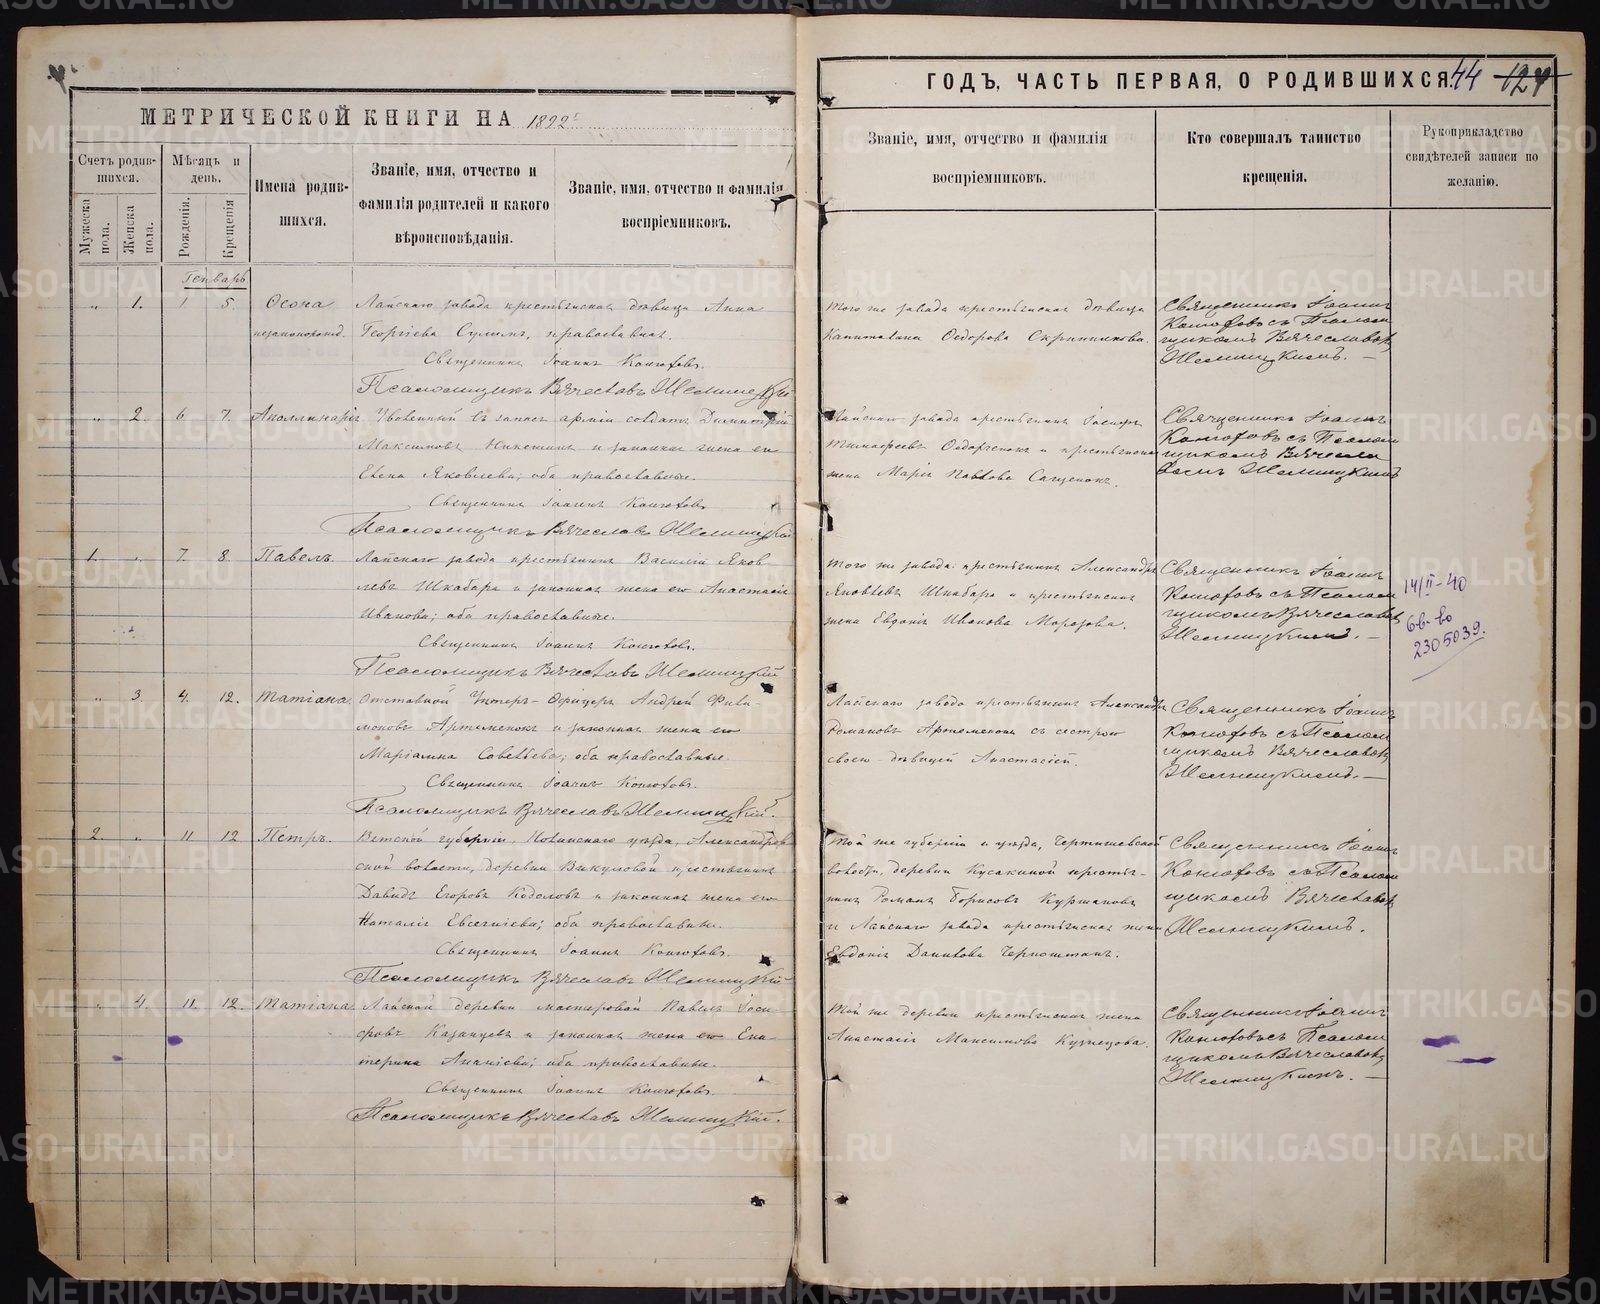 МЕТРИЧЕСКОЙ КНИГИ НА 1892
Счетъ родив-
шихся.
Мѣсяцъ и
день.
Имена родив-
шихся.
Званіе, имя, отчество и
фамилія родителей и какого
вѣроисповѣданія.
Званіе, имя, отчество и фамилія
воспріемниковъ.
Мужеска
пола.
Женска
пола.
Рожденія.
Крещенія
Генварь
„ 1. 1 5. Лайскаго завода крестьянская дѣвица Анна
Георгіева православная.
Священникъ Іоаннъ Конюховъ.
Псаломщикъ Вячеславъ
„ 2. 6 7. Аполлинарія Уволенный въ запасъ арміи солдатъ Димитрій
Максимовъ Никитинъ и законная жена его
Елена Яковлева; оба православные.
Священникъ Іоаннъ Конюховъ
Псаломщикъ Вячеславъ
1. „ 7. 8. Павелъ. Лайскаго завода крестьянинъ Василій Яков
левъ Шкабара и законная жена его Анастасія
Иванова; оба православные.
Священникъ Іоаннъ Конюховъ.
Псаломщикъ Вячеславъ
„ 3. 4. 12. Татіана. Отставной Унтеръ-Офицеръ Андрей Фили-
моновъ Артеменокъ и законная жена его
Маріамна Савельева; оба православные.
Священникъ Іоаннъ Конюховъ.
Псаломщикъ Вячеславъ
2. „ 11 12 Петръ. Вятской губерніи, уѣзда, Александров
ской волости, деревни Викуловой крестьянинъ
Давидъ Егоровъ и законная жена его
Наталія Евсевіева; оба православные.
Священникъ Іоаннъ Конюховъ.
Псаломщикъ Вячеславъ
„ 4. 11. 12. Татіана Лайской деревни мастеровой Павелъ Іоси
фовъ Казанцевъ и законная жена его Ека
терина Ананіева; оба православные.
Священникъ Іоаннъ Конюховъ.
Псаломщикъ Вячеславъ
ГОДЪ, ЧАСТЬ ПЕРВАЯ, О РОДИВШИХСЯ. 44 124
Званіе, имя, отчество и фамилія
воспріемниковъ.
Кто совершалъ таинство
крещенія.
Рукоприкладство
свидѣтелей записи по
желанію.
того же завода крестьянская дѣвица
Капитолина Ѳедорова Скрипникова.
Священникъ Іоаннъ
Конюховъ съ Псалом
щикомъ Вячеславомъ
Лайскаго завода крестьянинъ Іосифъ
Тимофеевъ и крестьянская
жена Марія Павлова
Священникъ Іоаннъ
Конюховъ съ Псалом
щикомъ Вячесла
вомъ
того же завода: крестьянинъ Александръ
Яковлевъ Шкабара и крестьянская
жена Евдокія Иванова Морозова.
Священникъ Іоаннъ
Конюховъ съ Псалом
щикомъ Вячеславомъ
14/II-40
Св-во
2305039.
Лайскаго завода крестьянинъ Александръ
Романовъ Артеменокъ съ сестрою
своею дѣвицей Анастасіей.
Священникъ Іоаннъ
Конюховъ съ Псалом
щикомъ Вячеславомъ
Той же губерніи и уѣзда,
волости, деревни Кусакиной крестья-
нинъ Романъ Борисовъ
и Лайскаго завода крестьянская жена
Евдокія Данилова
Священникъ Іоаннъ
Конюховъ съ Псалом
щикомъ Вячеславомъ
Той же деревни крестьянская жена
Анастасія Максимова Кузнецова.
Священникъ Іоаннъ
Конюховъ съ Псалом
щикомъ Вячеславомъ
METRIKI.GASO-URAL.RU